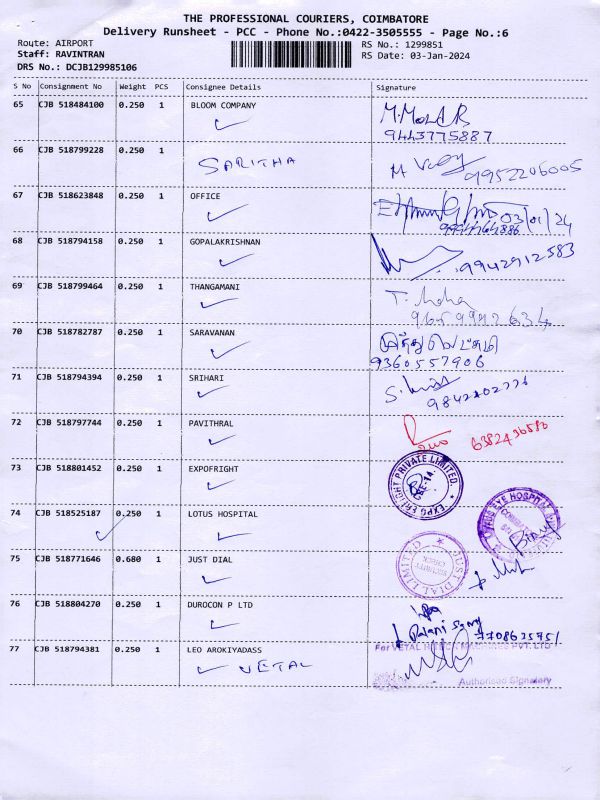 THE PROFESSIONAL COURIERS, COIMBATORE
Delivery Runsheet - PCC - Phone No.:0422-3505555 - Page No.:6
Route: AIRPORT
Staff: RAVINTRAN
DRS No.: DCJB129985106
RS No.: 1299851
RS Date: 03-Jan-2024
S No Consignment No Weight PCS Consignee Details Signature
65 CJB 518484100 0.250 1 BLOOM COMPANY
9443775887
66 CJB 518799228 0.250 1 SARITHA
9952206005
67 CJB 518623848 0.250 1 OFFICE
03/01/24
68 CJB 518794158 0.250 1 GOPALAKRISHNAN
9942912583
69 CJB 518799464 0.250 1 THANGAMANI
70 CJB 518782787 0.250 1 SARAVANAN
9360557906
71 CJB 518794394 0.250 1 SRIHARI
72 CJB 518797744 0.250 1 PAVITHRAL
73 CJB 518801452 0.250 1 EXPOFRIGHT
EXPO FREIGHT PRIVATE LIMITED.
74 CJB 518525187 0.250 1 LOTUS HOSPITAL
EYE HOSPITAL
75 CJB 518771646 0.680 1 JUST DIAL
JUST DIAL LIMITED
76 CJB 518804270 0.250 1 DUROCON P LTD
77 CJB 518794381 0.250 1 LEO AROKIYADASS
VETAL
For VETAL PVT. LTD
Authorised Signatory